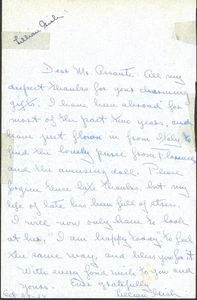 Lillian Gish
Dear Mr. Assante. All my
deepest thanks for your charming
gifts. I have been abroad for
most of the past two years, and
have just flown in from Italy to
find the lovely purse from Florence
and the amusing doll. Please
forgive late thanks, but my
life of late has been full of stress.
I will now only have to look
at her, I am happy today to feel
the same way, and bless you for it
With every good wish to you and
yours. Ever gratefully
Lillian Gish
Oct